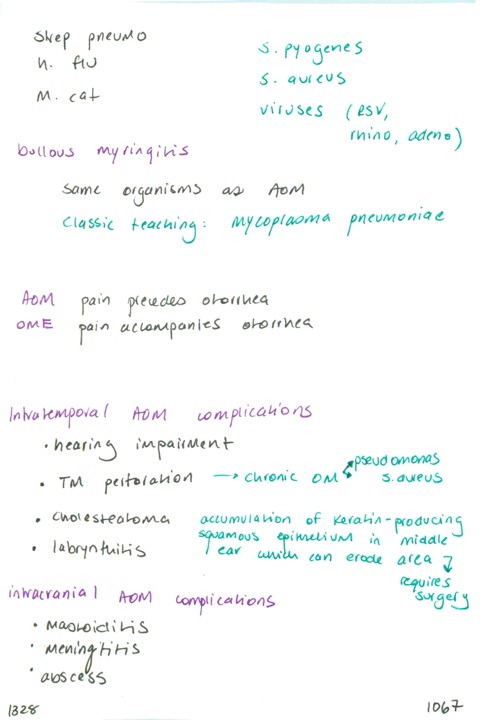 Strep pneumo
H. flu
M. cat
S. pyogenes
S. aureus
viruses (RSV,
rhino, adeno)
bullous myringitis
same organisms as AOM
classic teaching: mycoplasma pneumoniae
AOM pain precedes otorrhea
OME pain accompanies otorrhea
Intratemporal AOM complications
• hearing impairment
• TM perforation → chronic OM
pseudomonas
s. aureus
• cholesteatoma accumulation of keratin-producing
squamous epithelium in middle
• labrynthitis ear which can erode area
requires
surgery
intracranial AOM complications
• mastoiditis
• meningitis
• abscess
1328 1067